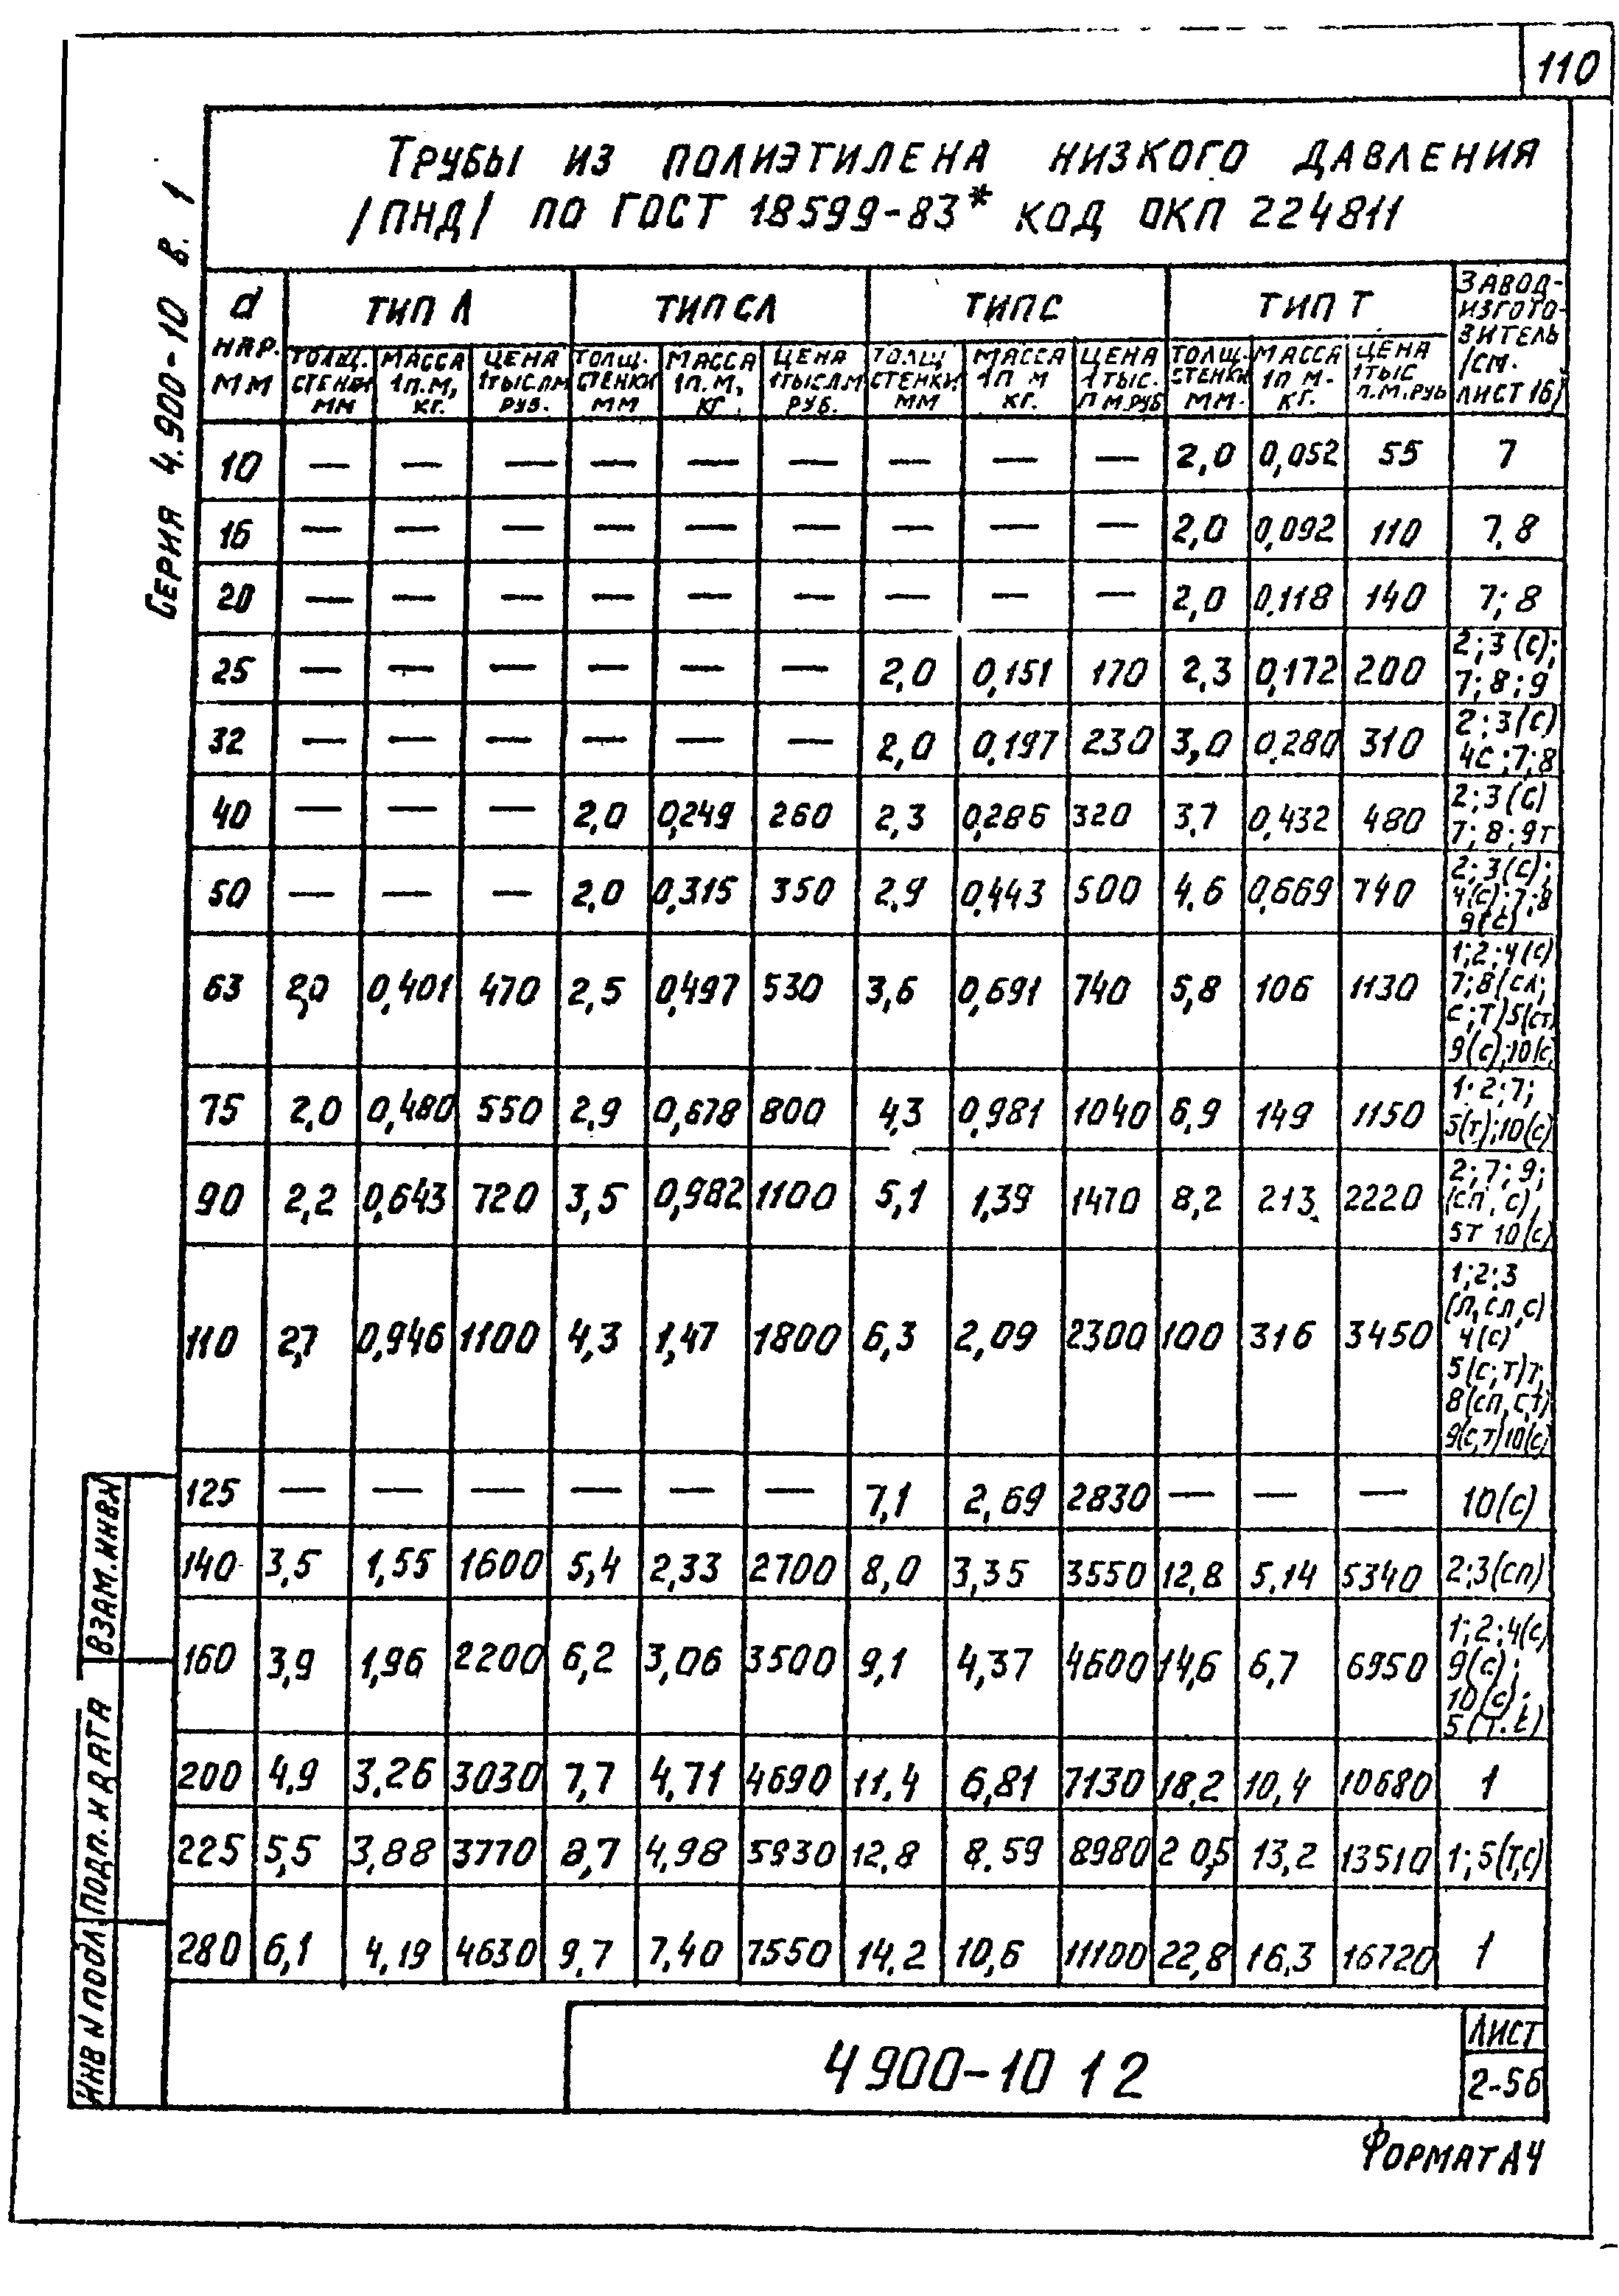 110
Серия 4.900-10 в. 1
Трубы из полиэтилена низкого давления
/ПНД/ по ГОСТ 18599-83* код ОКП 224811
d нар. мм | Тип Л | Тип СЛ | Тип С | Тип Т | Завод-изготовитель /см. лист 16/
Толщ. стенки мм | Масса 1п.м, кг. | Цена 1тыс.п.м руб. | Толщ. стенки мм | Масса 1п.м, кг | Цена 1тыс.п.м руб. | Толщ стенки мм | Масса 1п м кг. | Цена 1тыс. п м.руб | Толщ. стенки мм. | Масса 1п м. кг. | Цена 1тыс п.м.руб
10 — — — — — — — — — 2,0 0,052 55 7
16 — — — — — — — — — 2,0 0,092 110 7,8
20 — — — — — — — — — 2,0 0,118 140 7;8
25 — — — — — — 2,0 0,151 170 2,3 0,172 200 2;3(с); 7;8;9
32 — — — — — — 2,0 0,197 230 3,0 0,280 310 2;3(с) 4с;7;8
40 — — — 2,0 0,249 260 2,3 0,286 320 3,7 0,432 480 2;3(с) 7;8;9т
50 — — — 2,0 0,315 350 2,9 0,443 500 4,6 0,669 740 2;3(с); 4(с);7;8 9(с)
63 2,0 0,401 470 2,5 0,497 530 3,6 0,691 740 5,8 106 1130 1;2;4(с) 7;8(сл; с;т)5(ст) 9(с);10(с
75 2,0 0,480 550 2,9 0,678 800 4,3 0,981 1040 6,9 149 1150 1;2;7; 5(т);10(с)
90 2,2 0,643 720 3,5 0,982 1100 5,1 1,39 1470 8,2 213 2220 2;7;9; (сп,с), 5т 10(с)
110 2,7 0,946 1100 4,3 1,47 1800 6,3 2,09 2300 100 316 3450 1;2;3 (л,сл,с) 4(с) 5(с;т)7; 8(сп,с,т) 9(с,т)10(с)
125 — — — — — — 7,1 2,69 2830 — — — 10(с)
140 3,5 1,55 1600 5,4 2,33 2700 8,0 3,35 3550 12,8 5,14 5340 2;3(сп)
160 3,9 1,96 2200 6,2 3,06 3500 9,1 4,37 4600 14,6 6,7 6950 1;2;4(с) 9(с); 10(с); 5(т.с)
200 4,9 3,26 3030 7,7 4,71 4690 11,4 6,81 7130 18,2 10,4 10680 1
225 5,5 3,88 3770 8,7 4,98 5930 12,8 8.59 8980 20,5 13,2 13510 1;5(т,с)
280 6,1 4,19 4630 9,7 7,40 7550 14,2 10,6 11100 22,8 16,3 16720 1
Взам.инв.N
Подп. и дата
Инв N подл.
4 900-10 1 2
Лист
2-56
Формат А4